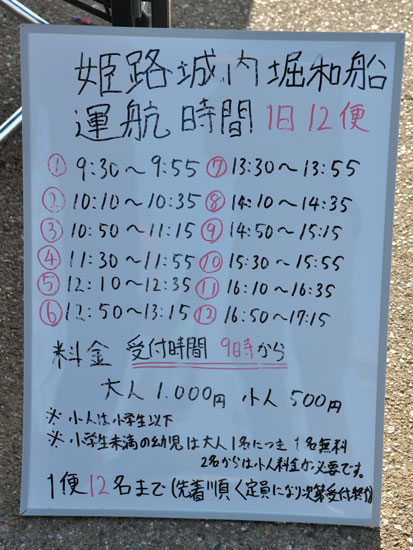 姫路城内堀和船
運航時間 1日12便
① 9:30～9:55 ⑦ 13:30～13:55
② 10:10～10:35 ⑧ 14:10～14:35
③ 10:50～11:15 ⑨ 14:50～15:15
④ 11:30～11:55 ⑩ 15:30～15:55
⑤ 12:10～12:35 ⑪ 16:10～16:35
⑥ 12:50～13:15 ⑫ 16:50～17:15
料金 受付時間 9時から
大人 1.000円 小人 500円
※ 小人は小学生以下
※ 小学生未満の幼児は大人1名につき 1名無料
2名からは小人料金が必要です。
1便12名まで(先着順〈定員になり次第受付終了〉